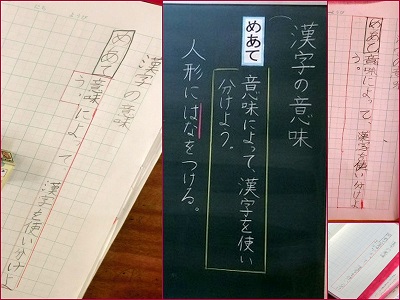 漢字の意味
めあて
意味によって、漢字を使い分けよ
う。
漢字の意味
めあて
意味によって、漢字を使い
分けよう。
人形にはなをつける。
めあて
意味によって、漢字を使い分けよ
う。